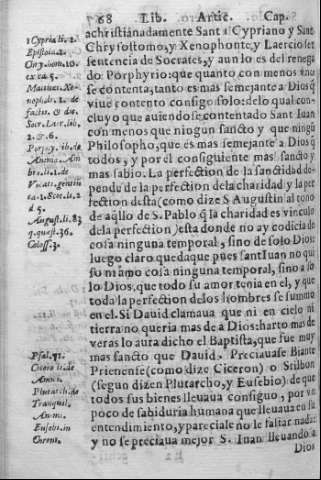 68 Lib. Artic. Cap.
achristianadamente Sant Cypriano y Sant
Chrysostomo, y Xenophonte, y Laercio les
sentencia de Socrates, y aun lo es del renega
do Porphyrio: que quanto con menos vno
se contenta, tanto es mas semejante a Dios q̃
viue contento consigo solo: de lo qual con-
cluyo que auiendose contentado Sant Iuan
con menos que ningun sancto y que ningũ
Philosopho, que es mas semejante a Dios q̃
todos, y por el consiguiente mas sancto y
mas sabio. La perfection de la sanctidad de-
pende de la perfection dela charidad y la per
fection desta (como dize S Augustin al tono
de aq̃llo de S. Pablo q̃ la charidad es vinculo
de la perfection) esta donde no ay codicia de
cosa ninguna temporal, sino de solo Dios:
luego claro queda que pues sant Iuan no qui
so ni amo cosa ninguna temporal, sino a so
lo Dios, que todo su amor tenia en el, y que
toda la perfection delos hombres se summo
en el. Si Dauid clamaua que ni en cielo ni
tierra no queria mas de a Dios: harto mas de
veras lo aura dicho el Baptista, que fue muy
mas sancto que Dauid. Preciauase Biante
Prienense (como dize Ciceron) o Stilbon
(segun dizen Plutarcho, y Eusebio) de que
todos sus bienes lleuaua consiguo, por vn
poco de sabiduria humana que lleuaua en su
entendimiento, y pareciale no le faltar nada
y no se preciaua mejor S. Iuan lleuando a
Dios
1 Cypria. li. 2.
Epistola 2.
Chry. hom. 10.
ex ca. 5.
Xe-
nophõ. 1. de
factis. &
Socr. Laer. lib.
2. & 6.
Porphy. lib. de
li. 1. de
d 5.
August. li. 83
q. quest. 36.
Coloss. 3.
Psal. 71.
Cicero li. de
Amici.
Plutarch. de
Tranquil.
Animi.
Euseb. in
Chroni.